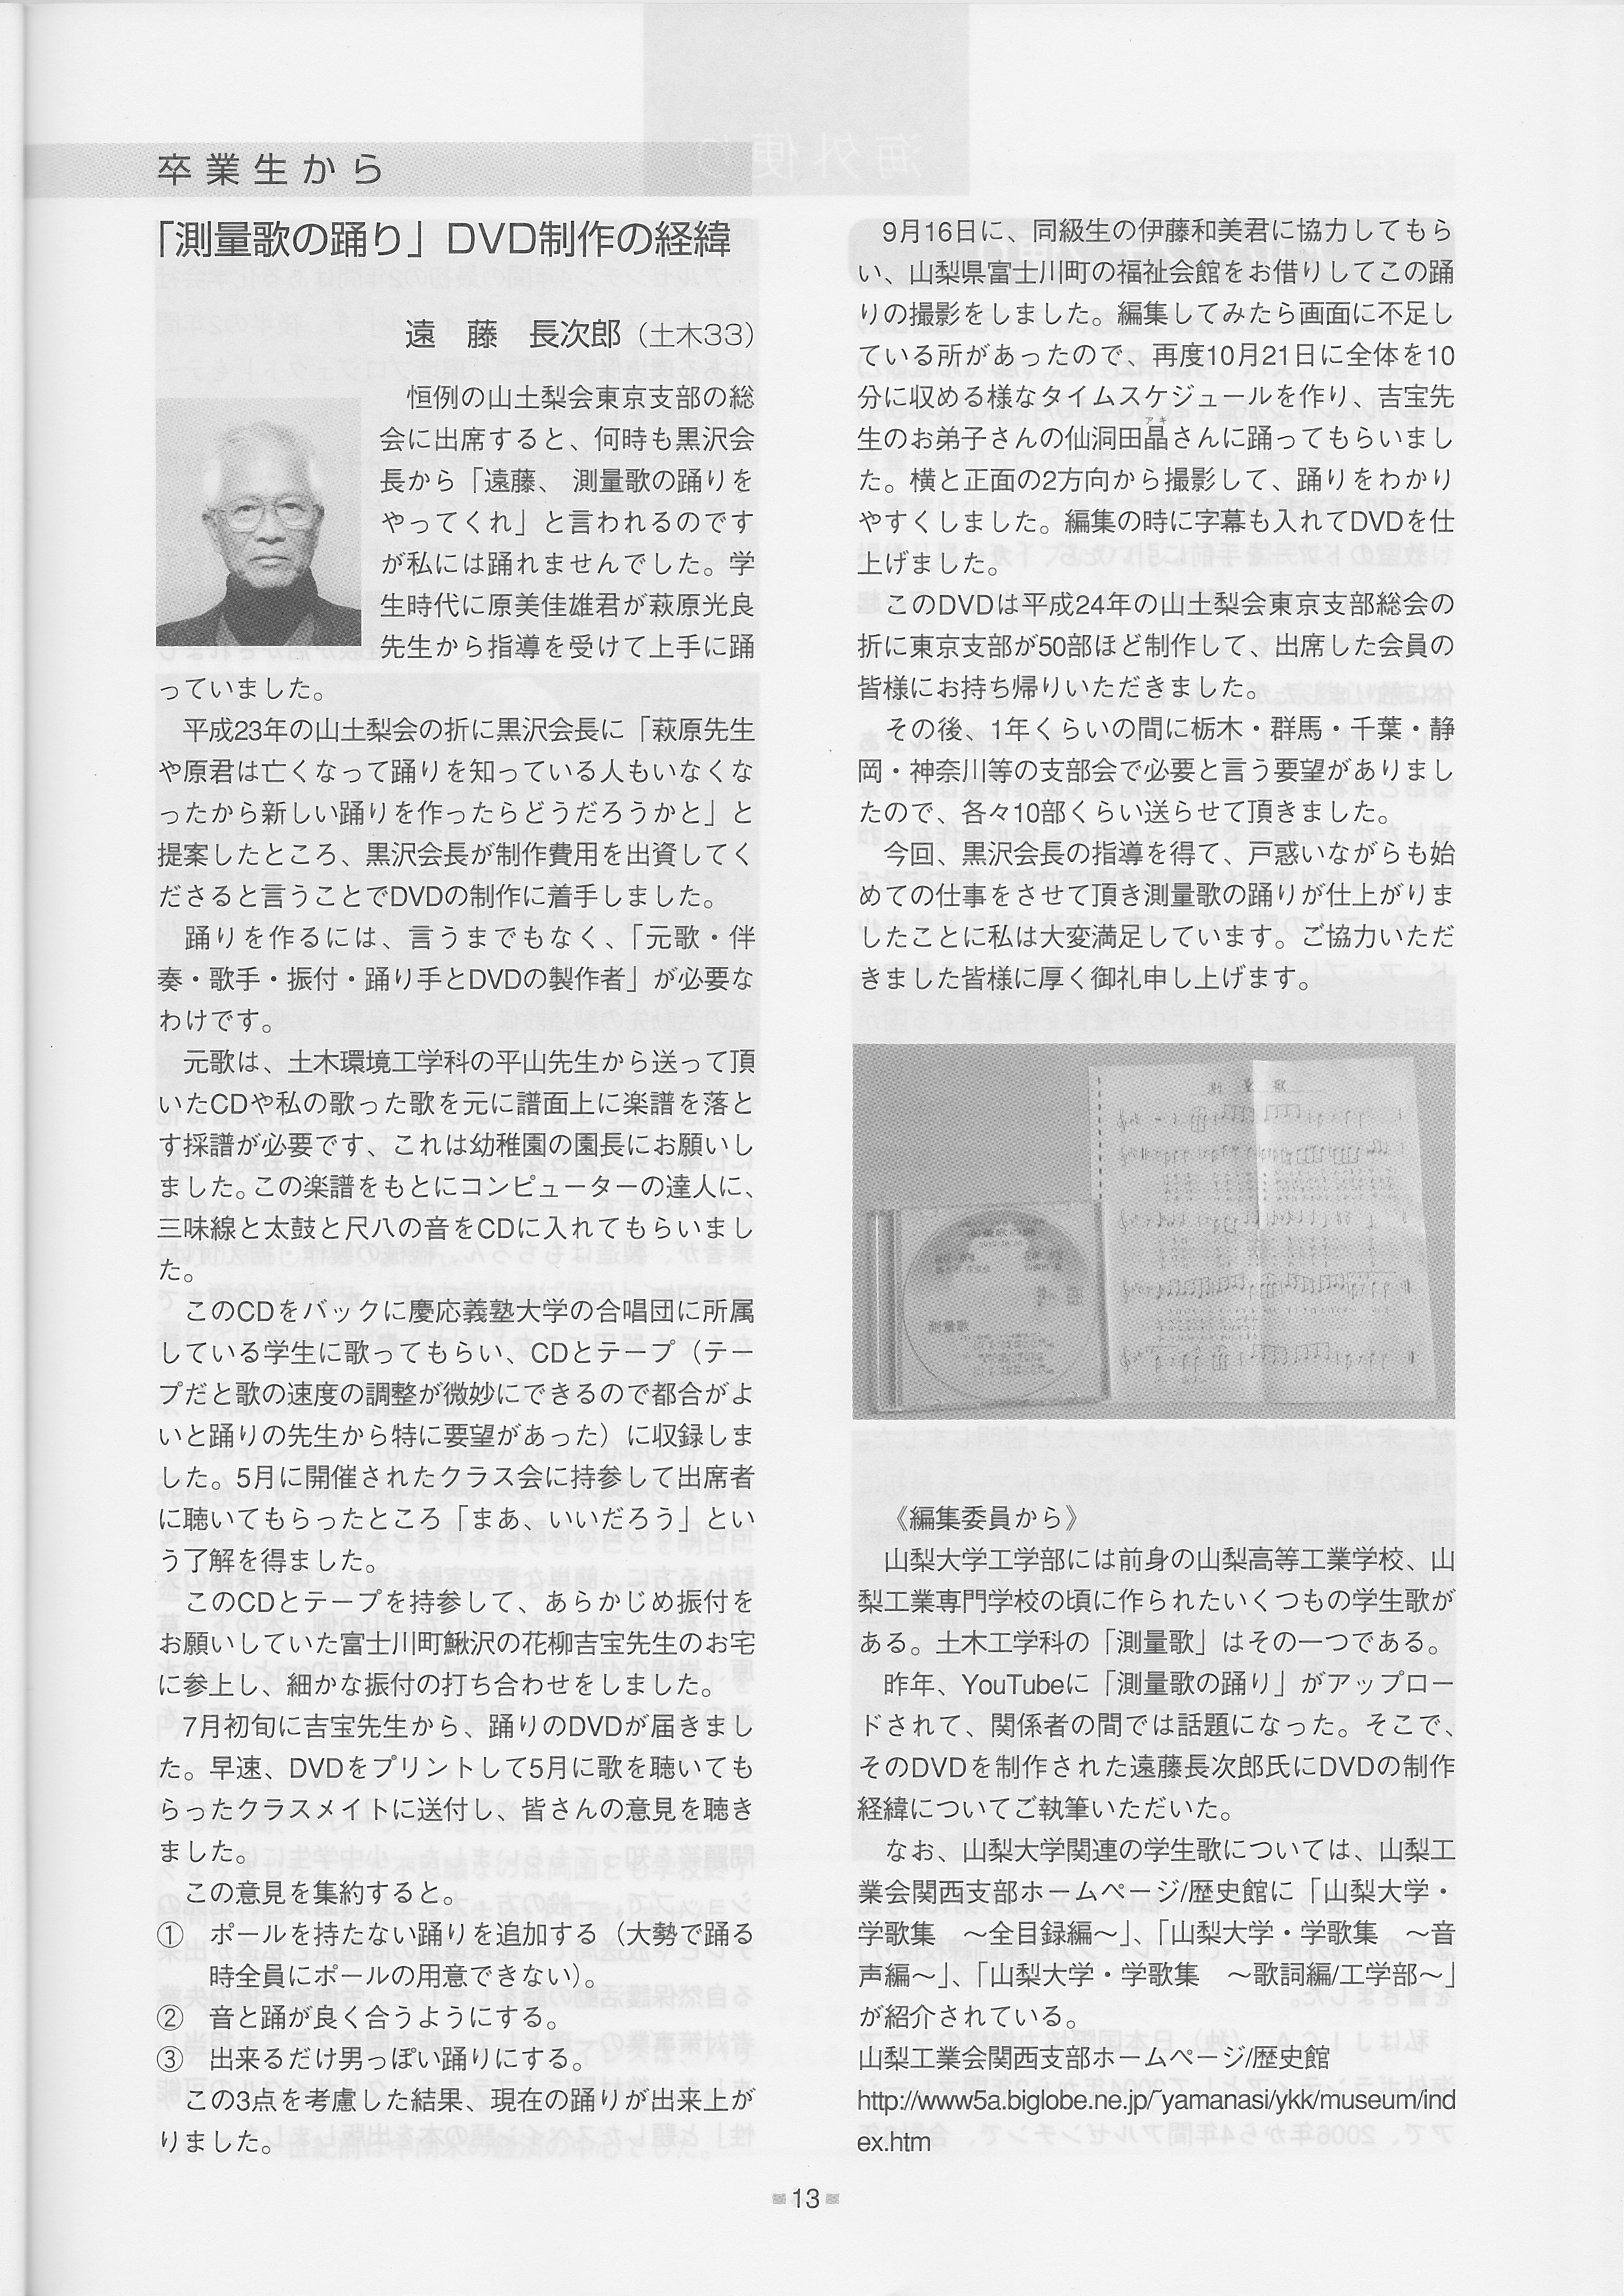 卒業生から
「測量歌の踊り」DVD制作の経緯
遠　藤　長次郎（土木33）
恒例の山土梨会東京支部の総
会に出席すると、何時も黒沢会
長から「遠藤、 測量歌の踊りを
やってくれ」と言われるのです
が私には踊れませんでした。学
生時代に原美佳雄君が萩原光良
先生から指導を受けて上手に踊
っていました。
　平成23年の山土梨会の折に黒沢会長に「萩原先生
や原君は亡くなって踊りを知っている人もいなくな
ったから新しい踊りを作ったらどうだろうかと」と
提案したところ、黒沢会長が制作費用を出資してく
ださると言うことでDVDの制作に着手しました。
　踊りを作るには、言うまでもなく、「元歌・伴
奏・歌手・振付・踊り手とDVDの製作者」が必要な
わけです。
　元歌は、土木環境工学科の平山先生から送って頂
いたCDや私の歌った歌を元に譜面上に楽譜を落と
す採譜が必要です、これは幼稚園の園長にお願いし
ました。この楽譜をもとにコンピューターの達人に、
三味線と太鼓と尺八の音をCDに入れてもらいまし
た。
　このCDをバックに慶応義塾大学の合唱団に所属
している学生に歌ってもらい、CDとテープ（テー
プだと歌の速度の調整が微妙にできるので都合がよ
いと踊りの先生から特に要望があった）に収録しま
した。5月に開催されたクラス会に持参して出席者
に聴いてもらったところ「まあ、いいだろう」とい
う了解を得ました。
　このCDとテープを持参して、あらかじめ振付を
お願いしていた富士川町鰍沢の花柳吉宝先生のお宅
に参上し、細かな振付の打ち合わせをしました。
　7月初旬に吉宝先生から、踊りのDVDが届きまし
た。早速、DVDをプリントして5月に歌を聴いても
らったクラスメイトに送付し、皆さんの意見を聴き
ました。
　この意見を集約すると。
①　ポールを持たない踊りを追加する（大勢で踊る
時全員にポールの用意できない）。
②　音と踊が良く合うようにする。
③　出来るだけ男っぽい踊りにする。
　この3点を考慮した結果、現在の踊りが出来上が
りました。
　9月16日に、同級生の伊藤和美君に協力してもら
い、山梨県富士川町の福祉会館をお借りしてこの踊
りの撮影をしました。編集してみたら画面に不足し
ている所があったので、再度10月21日に全体を10
分に収める様なタイムスケジュールを作り、吉宝先
アキ
生のお弟子さんの仙洞田晶さんに踊ってもらいまし
た。横と正面の2方向から撮影して、踊りをわかり
やすくしました。編集の時に字幕も入れてDVDを仕
上げました。
　このDVDは平成24年の山土梨会東京支部総会の
折に東京支部が50部ほど制作して、出席した会員の
皆様にお持ち帰りいただきました。
　その後、1年くらいの間に栃木・群馬・千葉・静
岡・神奈川等の支部会で必要と言う要望がありまし
たので、各々10部くらい送らせて頂きました。
　今回、黒沢会長の指導を得て、戸惑いながらも始
めての仕事をさせて頂き測量歌の踊りが仕上がりま
したことに私は大変満足しています。ご協力いただ
きました皆様に厚く御礼申し上げます。
測 量 歌
測量歌
《編集委員から》
　山梨大学工学部には前身の山梨高等工業学校、山
梨工業専門学校の頃に作られたいくつもの学生歌が
ある。土木工学科の「測量歌」はその一つである。
　昨年、YouTubeに「測量歌の踊り」がアップロー
ドされて、関係者の間では話題になった。そこで、
そのDVDを制作された遠藤長次郎氏にDVDの制作
経緯についてご執筆いただいた。
　なお、山梨大学関連の学生歌については、山梨工
業会関西支部ホームページ/歴史館に「山梨大学・
学歌集　～全目録編～」、「山梨大学・学歌集　～音
声編～」、「山梨大学・学歌集　～歌詞編/工学部～」
が紹介されている。
山梨工業会関西支部ホームページ/歴史館
http://www5a.biglobe.ne.jp/~yamanasi/ykk/museum/ind
ex.htm
13